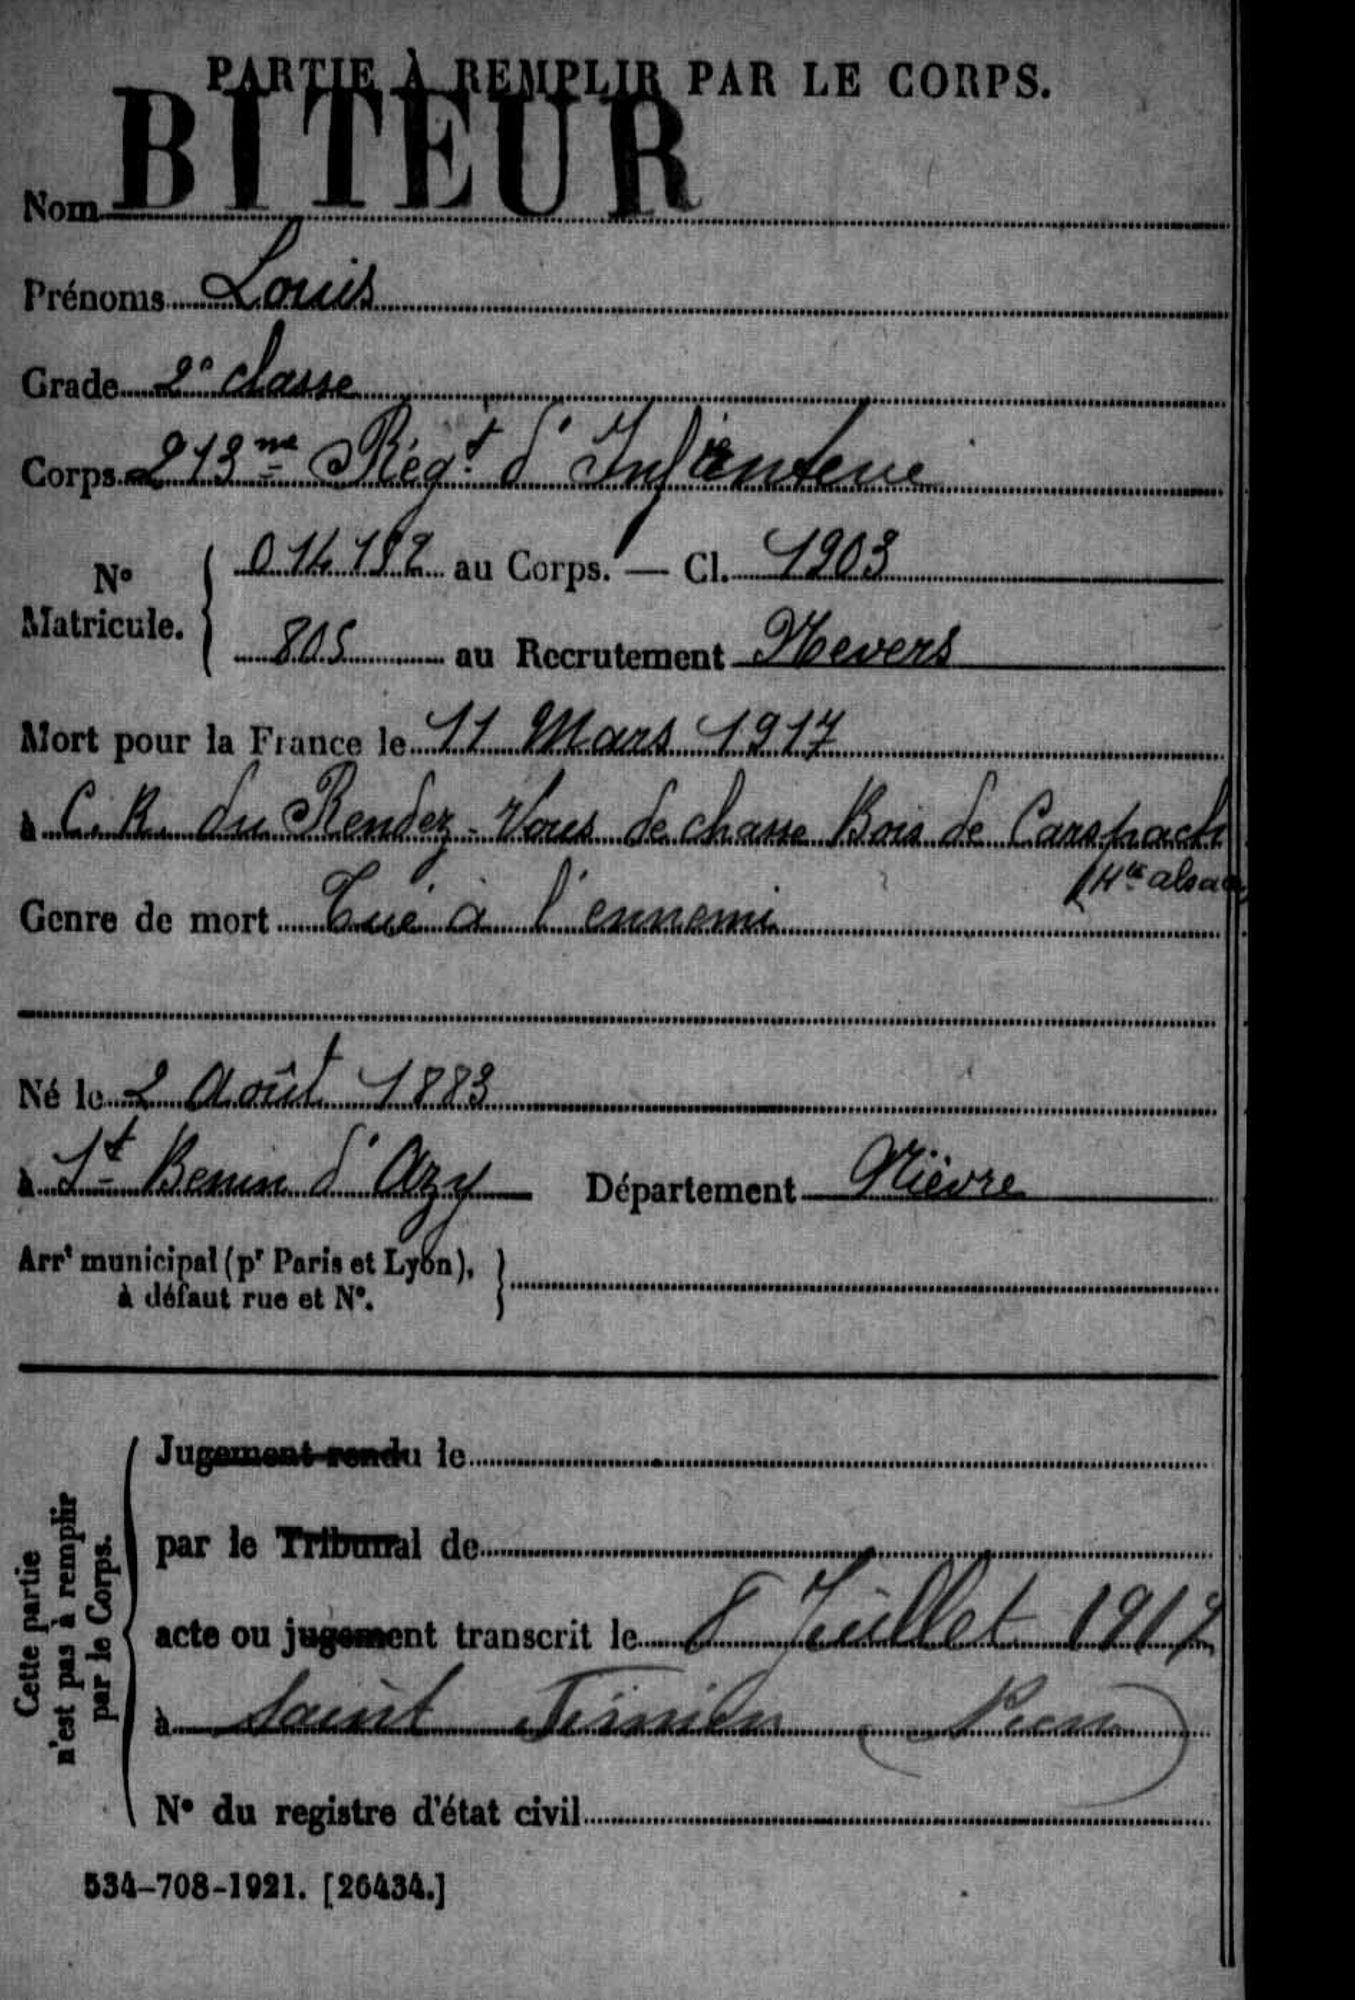 PARTIE À REMPLIR PAR LE CORPS.
Nom BITEUR
Prénoms Louis
Grade 2e classe
Corps 213me Régt d'Infanterie
No Matricule. 014192 au Corps. — Cl. 1903
805 au Recrutement Nevers
Mort pour la France le 11 Mars 1917
à C. R. du Rendez-Vous de chasse Bois de Carspach
(Hte alsa
Genre de mort Tué à l'ennemi
Né le 2 Août 1883
à St Benin d'Azy Département Nièvre
Arrt municipal (pr Paris et Lyon),
à défaut rue et No.
Cette partie
n'est pas à remplir
par le Corps.
Jugement rendu le
par le Tribunal de
acte ou jugement transcrit le 8 Juillet 1917
à Saint
No du registre d'état civil
534-708-1921. [26434.]